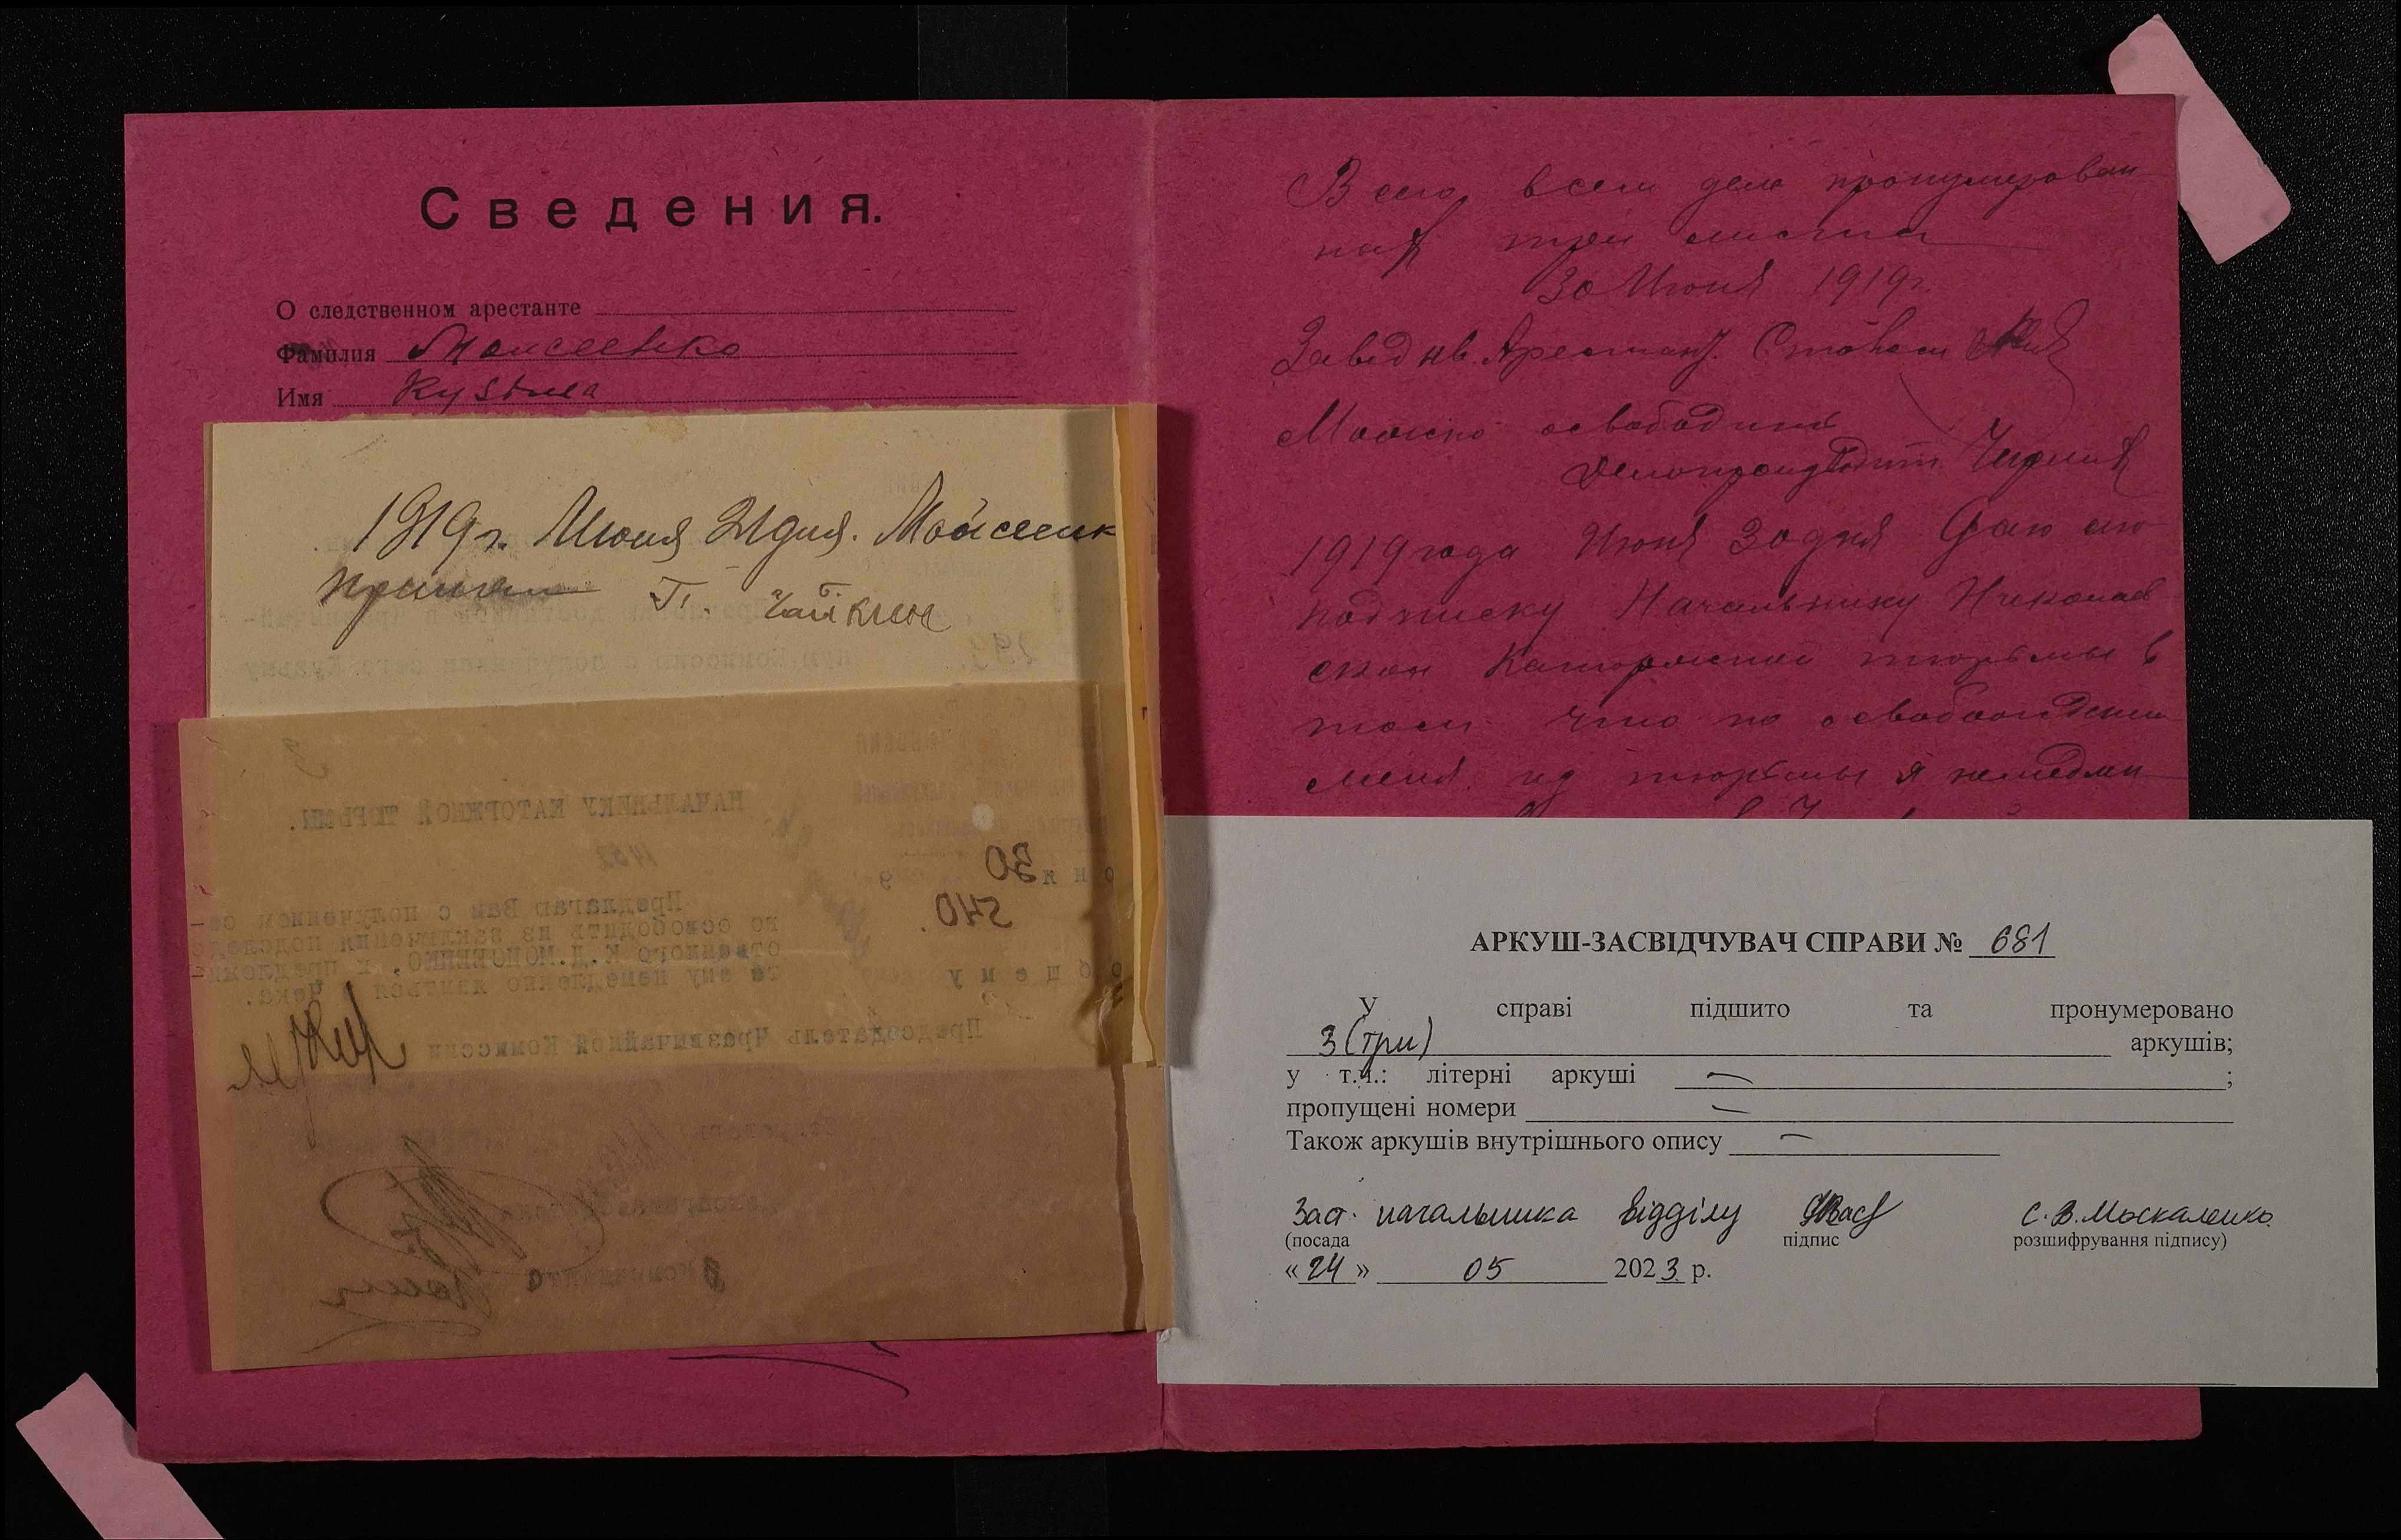 Сведения.
О следственном арестанте
Фамилия Моисеенко
Имя Кузьма
1919 г. Июня 21 дня. Мойсеенк
принял Г. Чайкин
НАЧАЛЬНИКУ КАТОРЖНОЙ ТЮРЬМЫ.
30
540.
Предлагаю Вам с получением се-
го освободить из заключения подследс
ственного К.Д.МОИСЕЕНКО, и предложи-
те ему немедленно явиться в Чека.
Председатель Чрезвычайной Комиссии
Всего всем деле пронумерован
ных три листа
30 Июня 1919 г.
Завед. Арестант. Столом
Можно освободить
Делопроизводит.
1919 года Июня 30 дня Даю сию
подписку Начальнику Николаев
ской Каторжной тюрьмы в
том что по освобождении
меня из тюрьмы я немедлен
АРКУШ-ЗАСВІДЧУВАЧ СПРАВИ № 681
У справі підшито та пронумеровано
3 (три) аркушів;
у т.ч.: літерні аркуші — ;
пропущені номери —
Також аркушів внутрішнього опису —
Заст. начальника відділу С.В.Москаленко
(посада підпис розшифрування підпису)
«24» 05 2023 р.